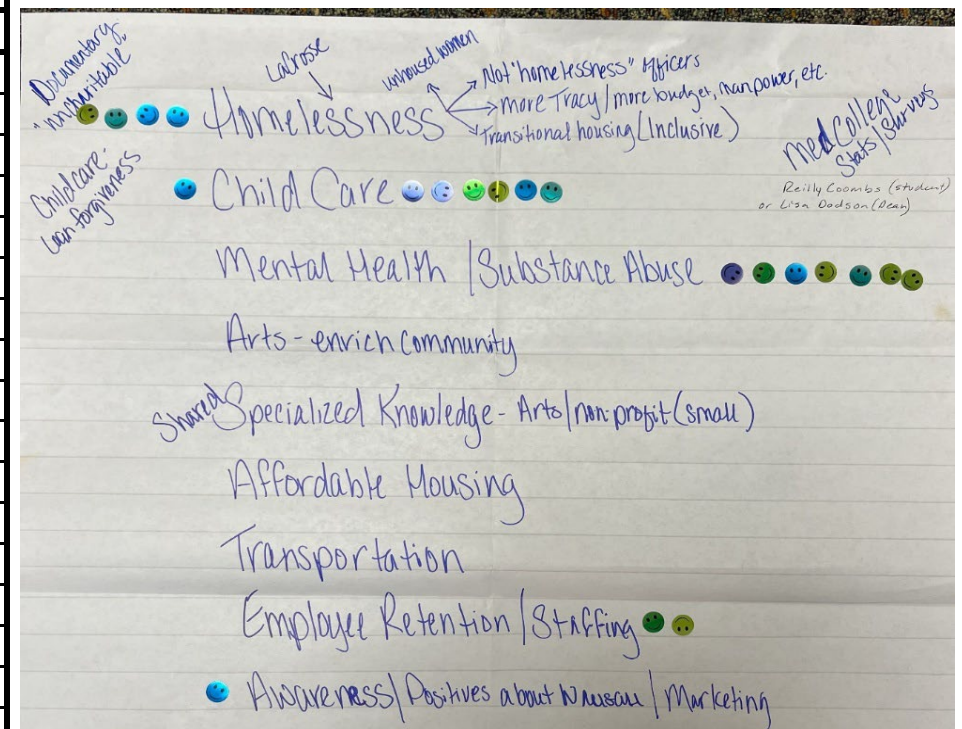 Documentary,
"Uncharitable
LaCrosse
unhoused women
Not "homelessness" officers
more Tracy/more budget, manpower, etc.
Transitional housing (Inclusive)
Homelessness
Med College
Stats/Surveys
Reilly Coombs (student)
or Lisa Dodson (Dean)
Childcare-
loan forgiveness
Child Care
Mental Health / Substance Abuse
Arts - enrich community
Shared Specialized Knowledge - Arts/nonprofit (small)
Affordable Housing
Transportation
Employee Retention / Staffing
Awareness/Positives about Wausau / Marketing